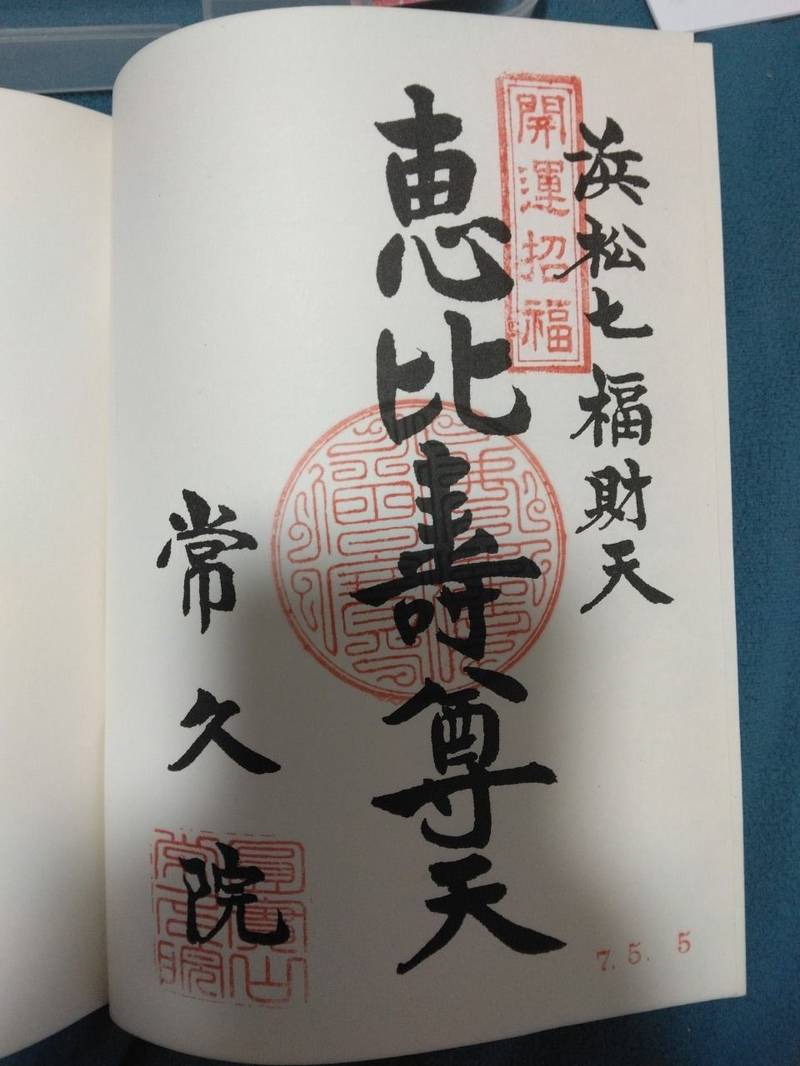 浜松七福財天
開運招福
恵比寿尊天
常久院
7.5.5